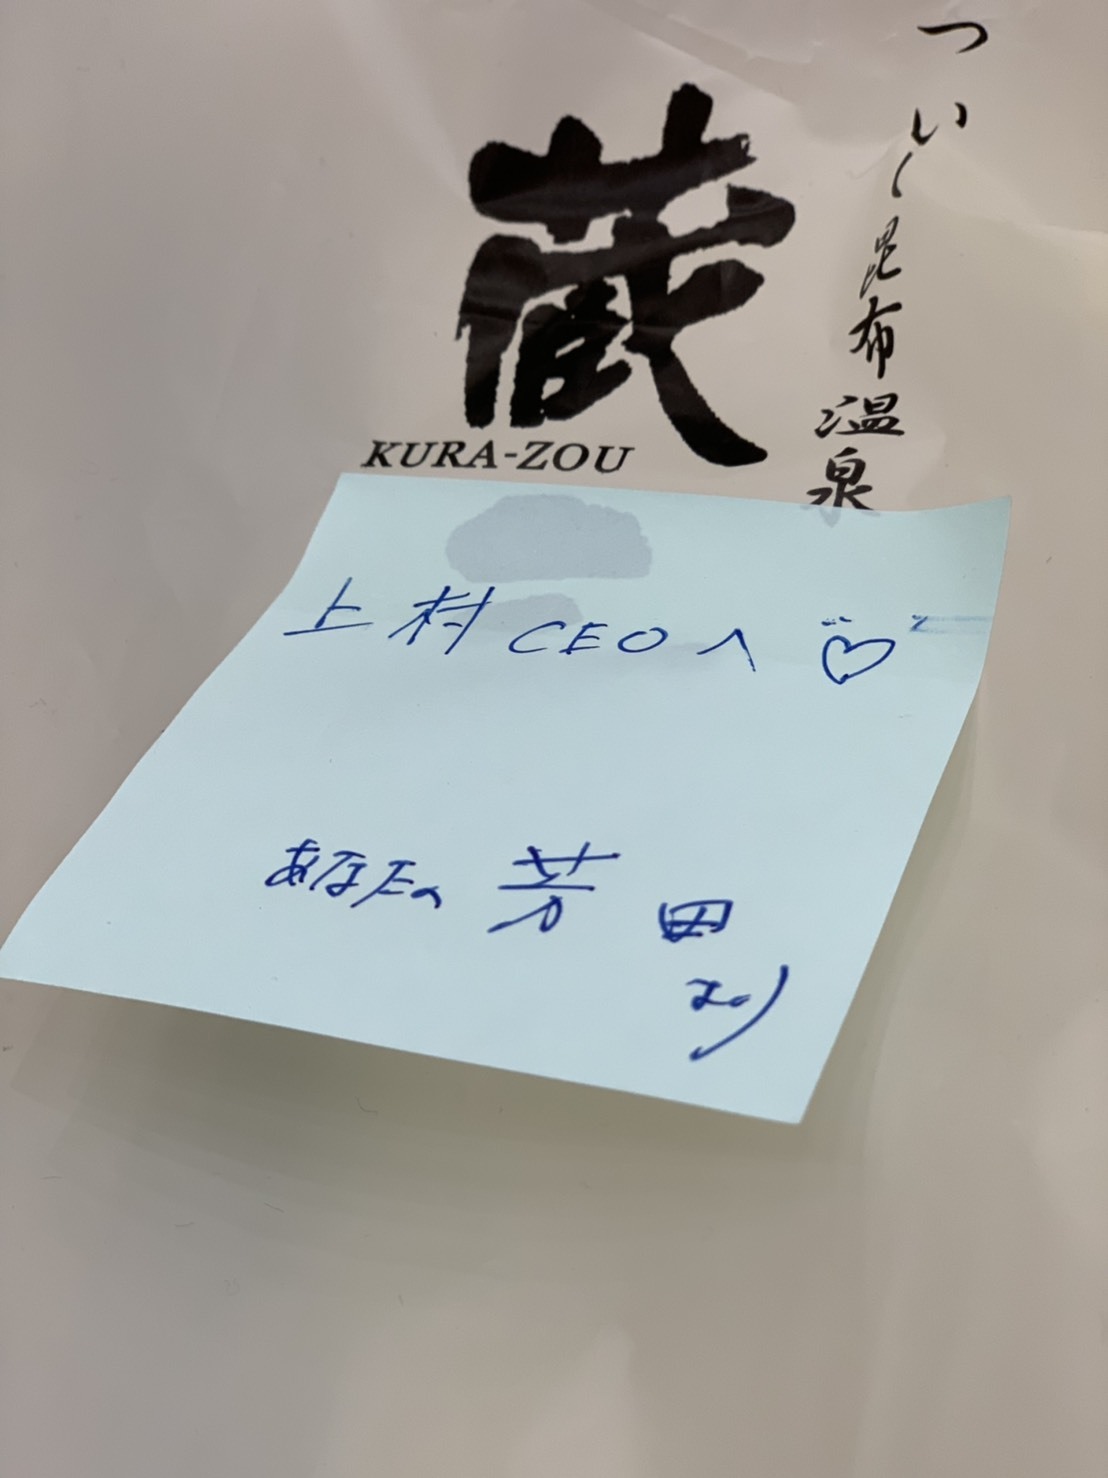 蔵
KURA-ZOU
昆布温泉
上村CEOへ♡
あなたの芳田
より